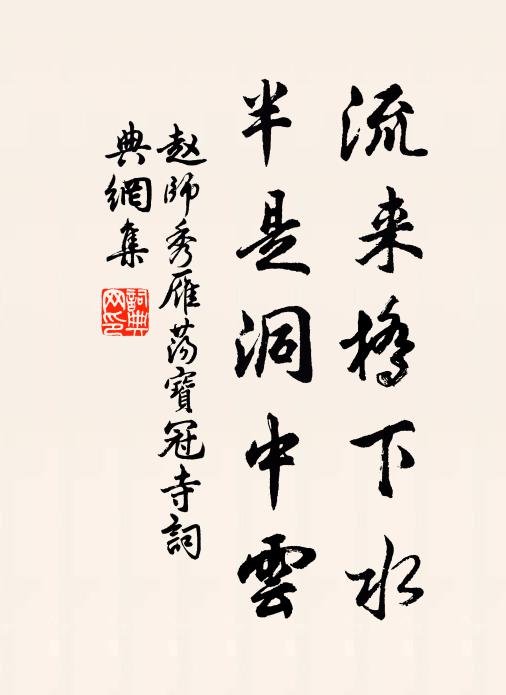 流来橋下水
半是洞中雲
赵師秀雁蕩寶冠寺詞
典網集
詞典
网印